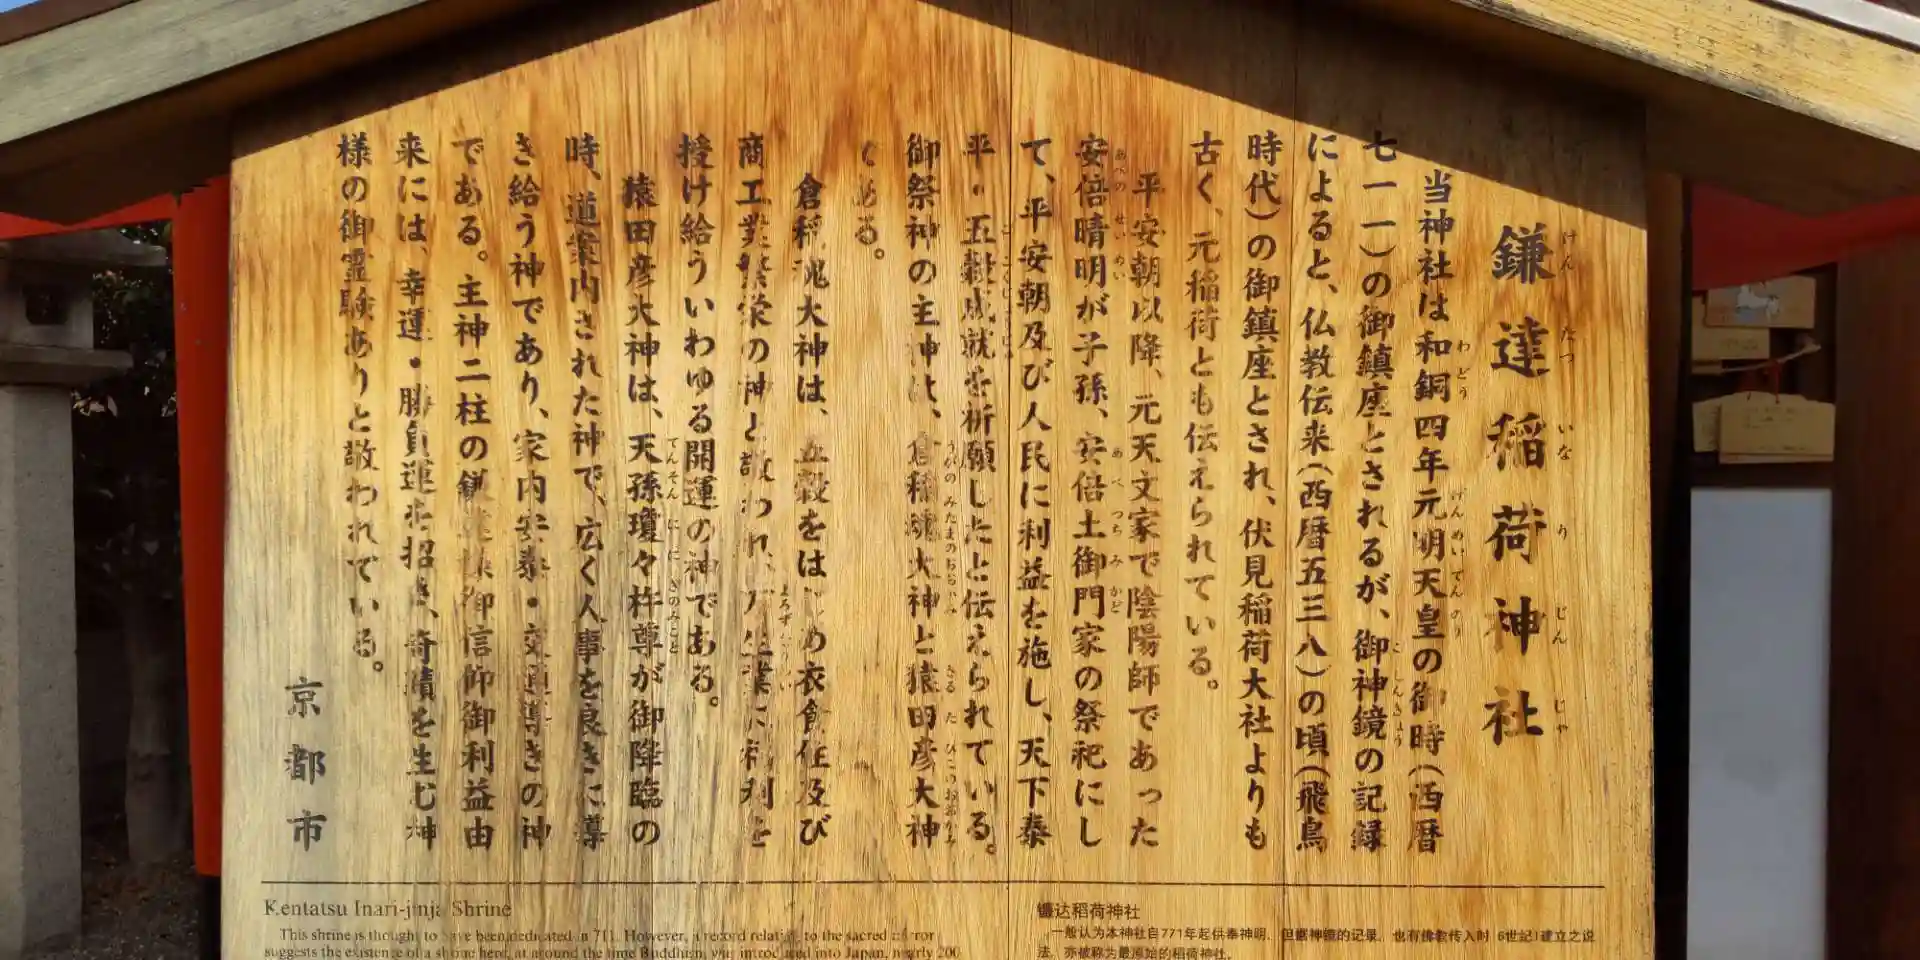 鎌達稲荷神社
けんたついなりじんじゃ
当神社は和銅四年元明天皇の御時(西暦
七一一)の御鎮座とされるが、御神鏡の記録
によると、仏教伝来(西暦五三八)の頃(飛鳥
時代)の御鎮座とされ、伏見稲荷大社よりも
古く、元稲荷とも伝えられている。
平安朝以降、元天文家で陰陽師であった
安倍晴明が子孫、安倍土御門家の祭祀にし
て、平安朝及び人民に利益を施し、天下泰
平・五穀成就を祈願したと伝えられている。
御祭神の主神は、倉稲魂大神と猿田彦大神
である。
倉稲魂大神は、五穀をはじめ衣食住及び
商工業繁栄の神と敬われ、万生業に福利を
授け給ういわゆる開運の神である。
猿田彦大神は、天孫瓊々杵尊が御降臨の
時、道案内された神で、広く人事を良きに導
き給う神であり、家内安泰・交通導きの神
である。主神二柱の鎌達様御信仰御利益由
来には、幸運・勝負運を招き、奇蹟を生む神
様の御霊験ありと敬われている。
京都市
Kentatsu Inari-jinja Shrine
This shrine is thought to have been dedicated in 711. However, a record relating to the sacred mirror
suggests the existence of a shrine here, at around the time Buddhism was introduced into Japan, nearly 200
镰达稻荷神社
一般认为本神社自771年起供奉神明，但据神镜的记录，也有佛教传入时(6世纪)建立之说
法，亦被称为最原始的稻荷神社。